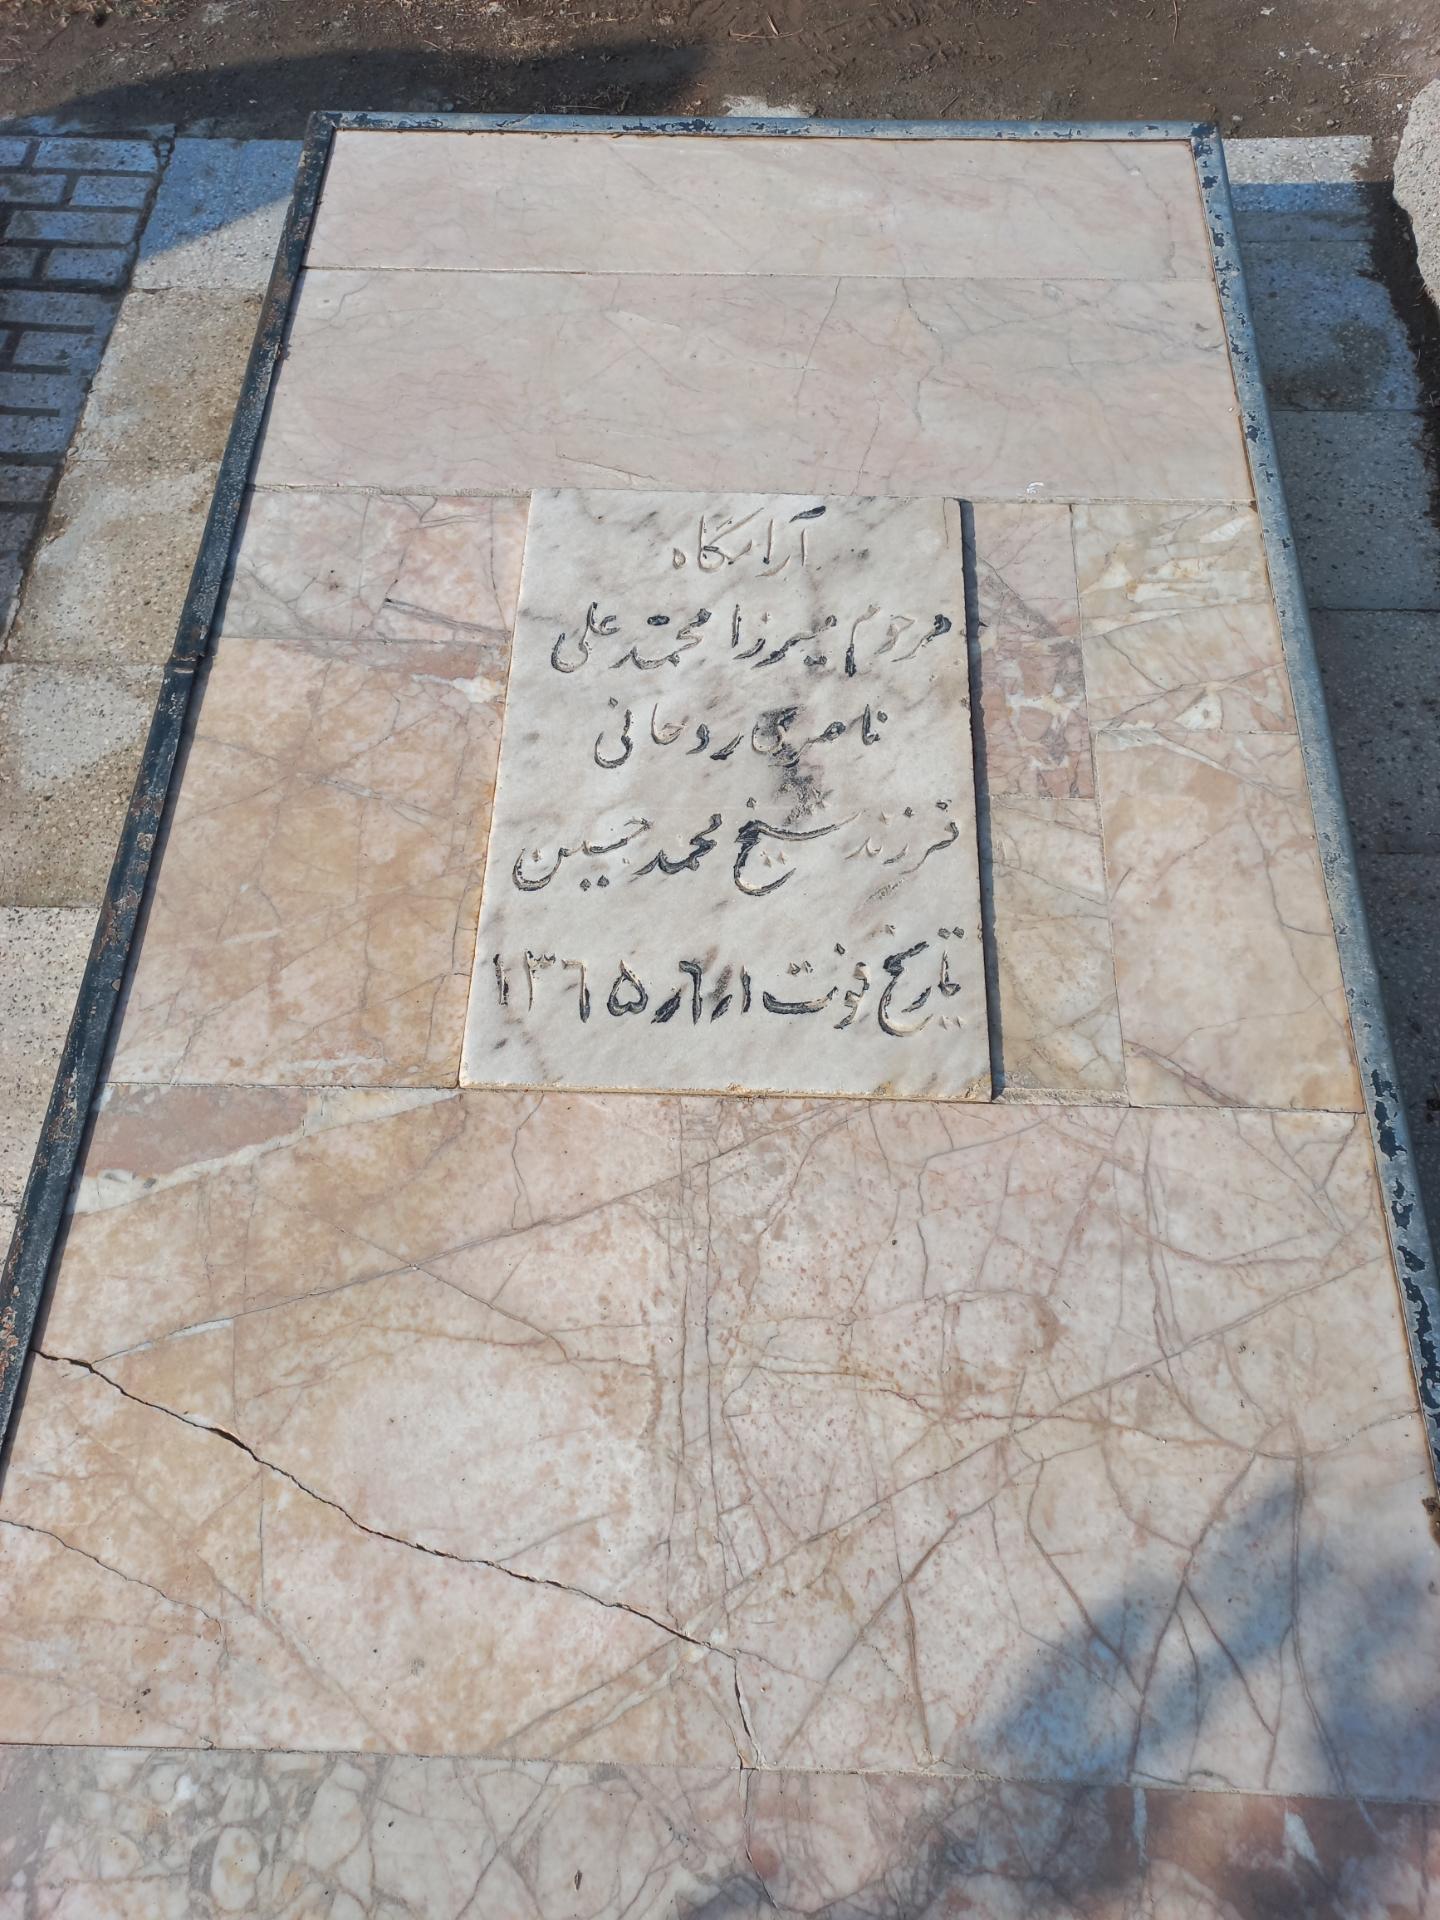 آرامگاه
مرحوم میرزا محمد علی
ناصری روحانی
فرزند شیخ محمد حسین
تاریخ فوت ۱ر۶ر۱۳۶۵